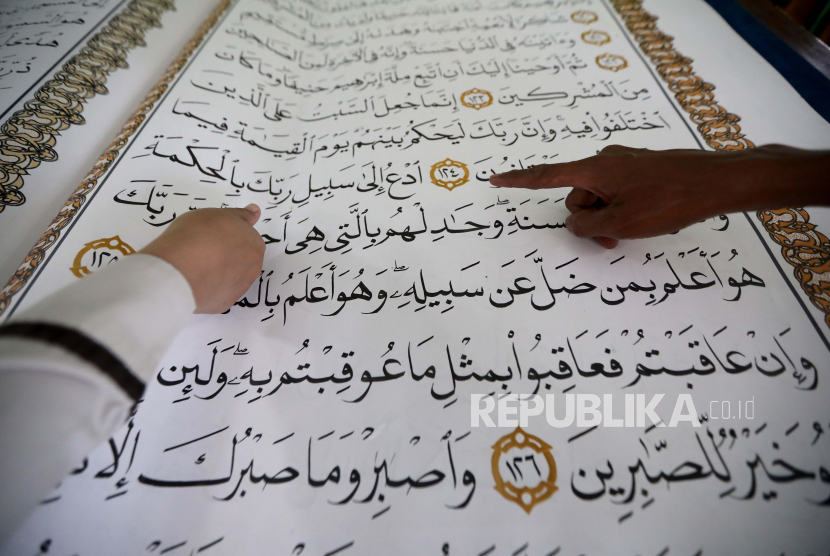 شَاكِرًا لِّأَنْعُمِهِ ٱجْتَبَىٰهُ وَهَدَىٰهُ إِلَىٰ صِرَٰطٍ
وَءَاتَيْنَٰهُ فِى ٱلدُّنْيَا حَسَنَةً وَإِنَّهُۥ فِى ٱلْءَاخِرَةِ لَمِنَ ٱلصَّٰلِحِينَ
ثُمَّ أَوْحَيْنَآ إِلَيْكَ أَنِ ٱتَّبِعْ مِلَّةَ إِبْرَٰهِيمَ حَنِيفًا وَمَا كَانَ
مِنَ ٱلْمُشْرِكِينَ ١٢٣ إِنَّمَا جُعِلَ ٱلسَّبْتُ عَلَى ٱلَّذِينَ
ٱخْتَلَفُوا۟ فِيهِ وَإِنَّ رَبَّكَ لَيَحْكُمُ بَيْنَهُمْ يَوْمَ ٱلْقِيَٰمَةِ فِيمَا
١٢٤ ٱدْعُ إِلَىٰ سَبِيلِ رَبِّكَ بِٱلْحِكْمَةِ
وَجَٰدِلْهُم بِٱلَّتِى هِىَ رَبَّكَ
هُوَ أَعْلَمُ بِمَن ضَلَّ عَن سَبِيلِهِۦ ۖ وَهُوَ أَعْلَمُ ١٢٥
وَإِنْ عَاقَبْتُمْ فَعَاقِبُوا۟ بِمِثْلِ مَا عُوقِبْتُم بِهِۦ ۖ وَلَئِن
خَيْرٌ لِّلصَّٰبِرِينَ ١٢٦ وَٱصْبِرْ وَمَا صَبْرُكَ إِلَّا
REPUBLIKA.co.id